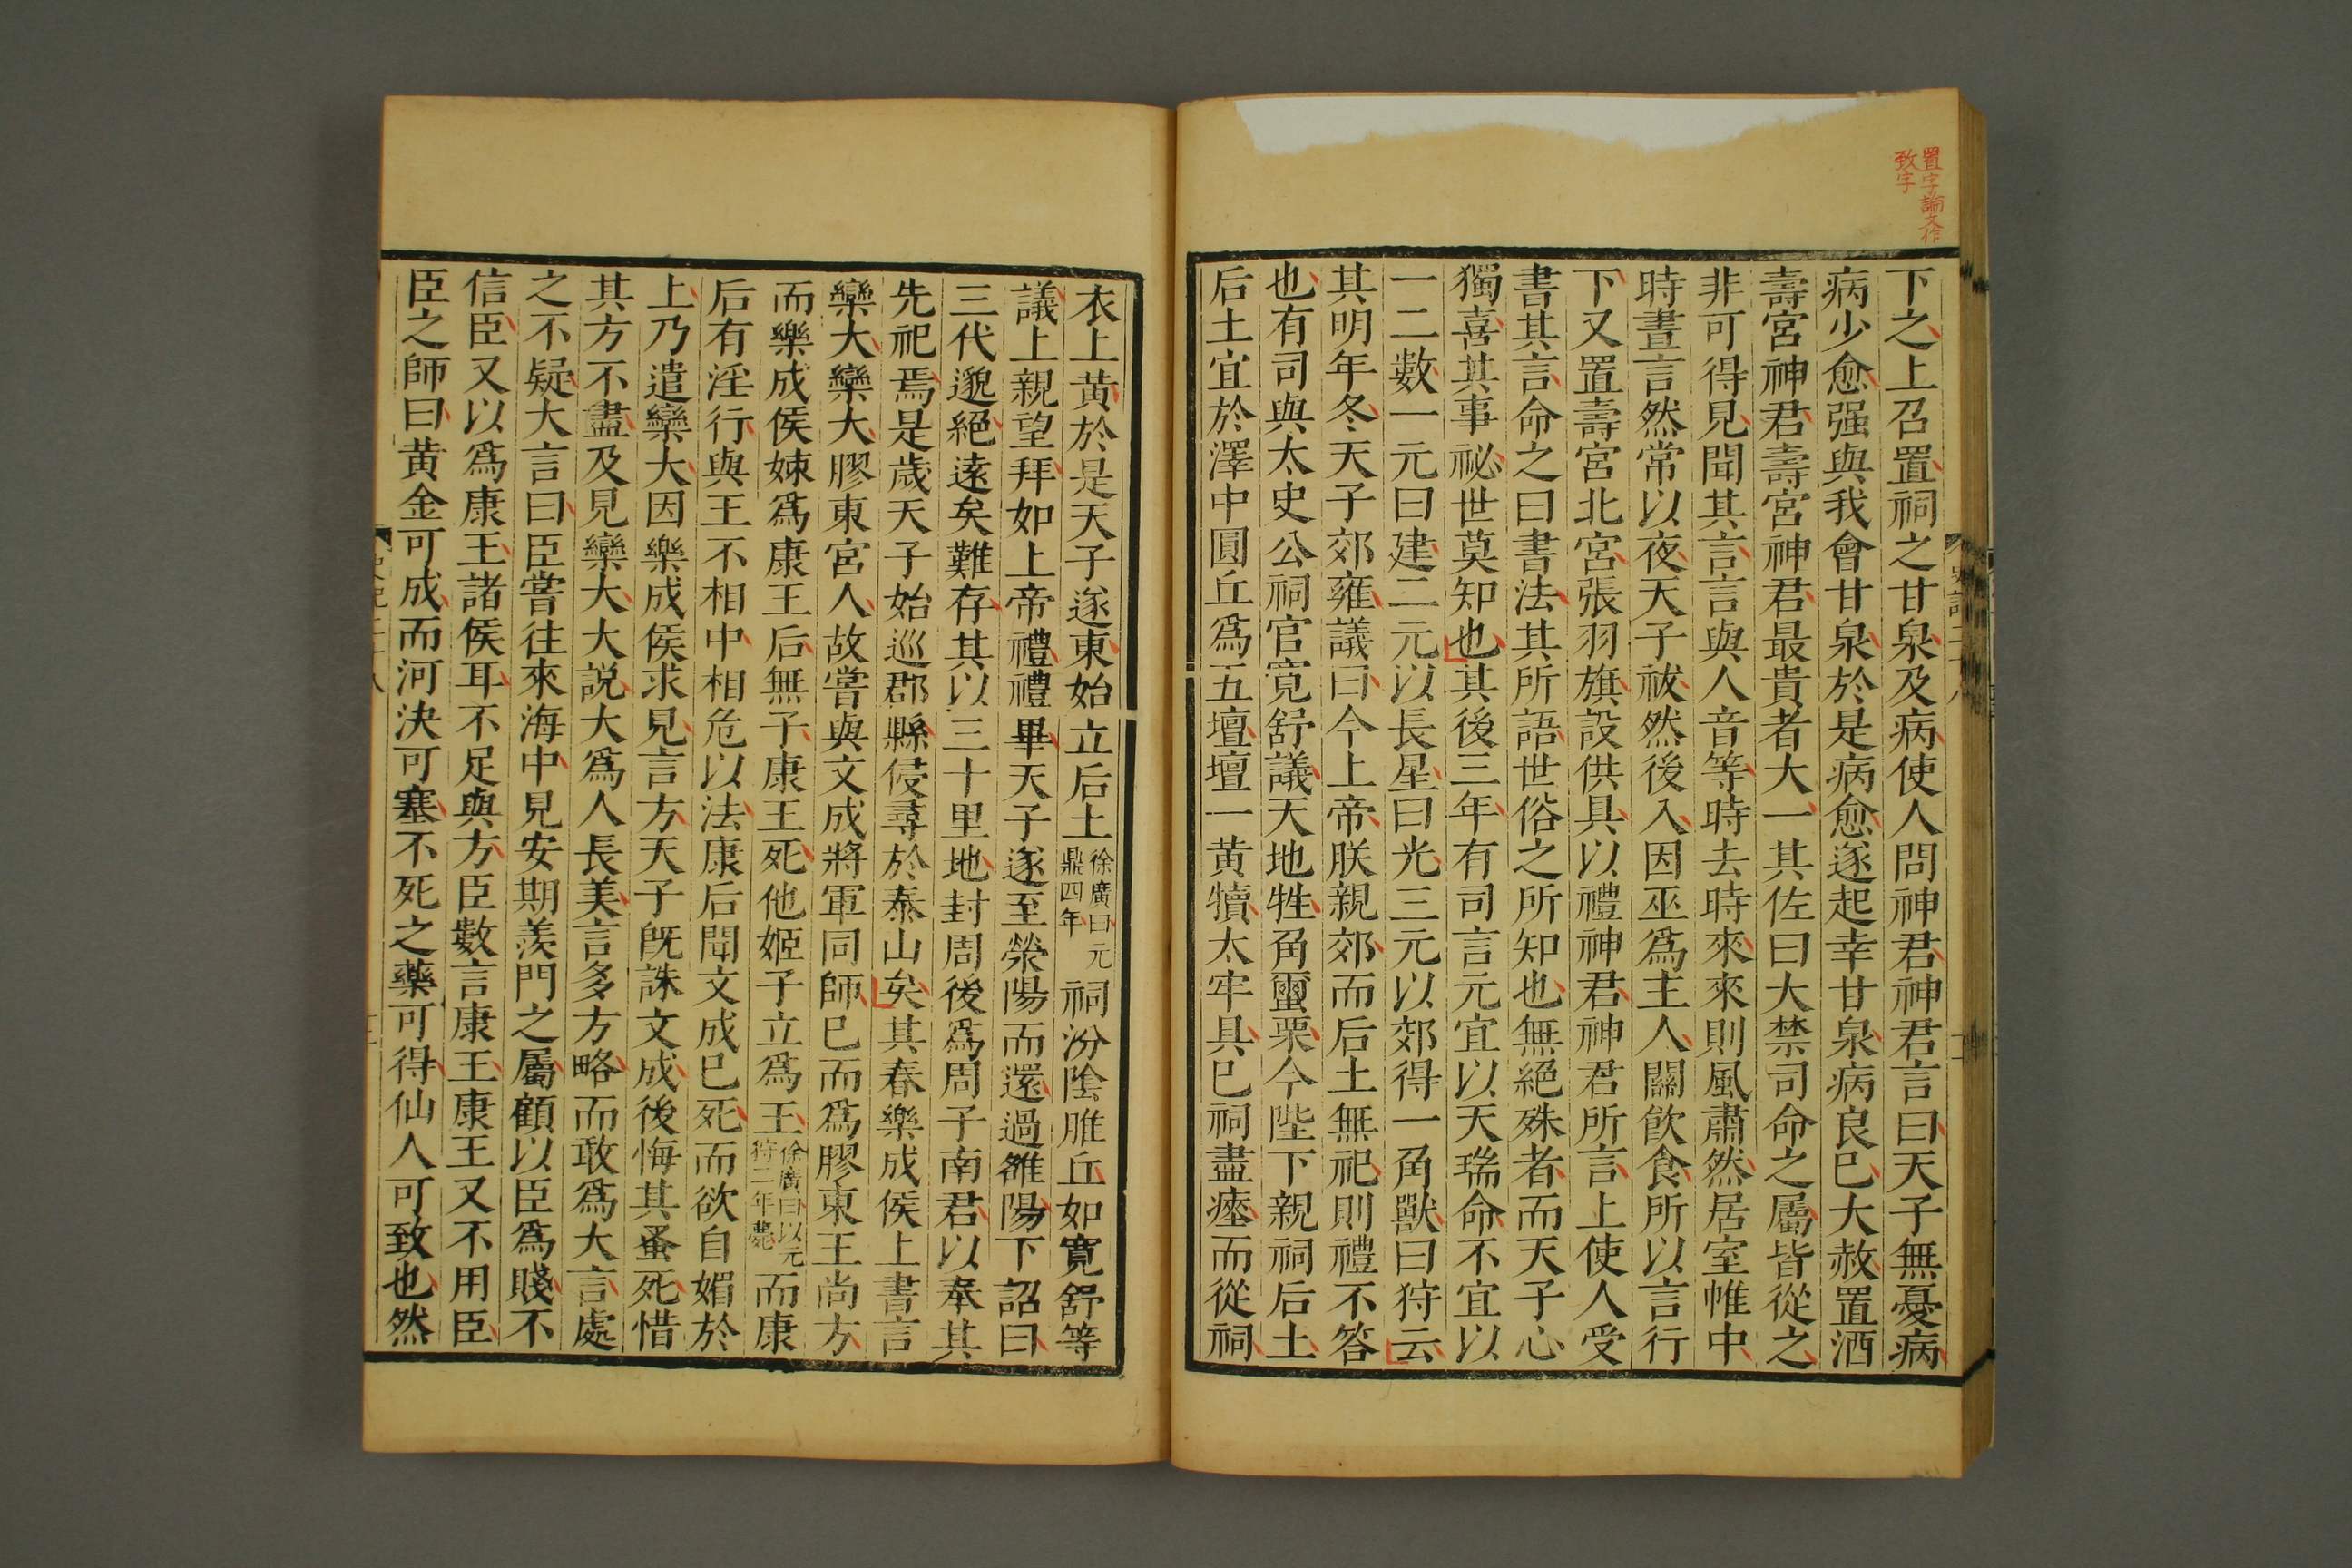 置字論文作
致字
下之上召置祠之甘泉及病使人問神君神君言曰天子無憂病
病少愈强與我會甘泉於是病愈遂起幸甘泉病良已大赦置酒
壽宮神君壽宮神君最貴者大一其佐曰大禁司命之屬皆從之
非可得見聞其言言與人音等時去時來來則風肅然居室帷中
時晝言然常以夜天子祓然後入因巫爲主人關飲食所以言行
下又置壽宮北宮張羽旗設供具以禮神君神君所言上使人受
書其言命之曰書法其所語世俗之所知也無絕殊者而天子心
獨喜其事祕世莫知也其後三年有司言元宜以天瑞命不宜以
一二數一元曰建二元以長星曰光三元以郊得一角獸曰狩云
其明年冬天子郊雍議曰今上帝朕親郊而后土無祀則禮不答
也有司與太史公祠官寬舒議天地牲角蠒栗今陛下親祠后土
后土宜於澤中圓丘爲五壇壇一黃犢太牢具已祠盡瘞而從祠
衣上黃於是天子遂東始立后土徐廣曰元鼎四年祠汾陰脽丘如寬舒等
議上親望拜如上帝禮禮畢天子遂至滎陽而還過雒陽下詔曰
三代邈絕遠矣難存其以三十里地封周後爲周子南君以奉其
先祀焉是歲天子始巡郡縣侵尋於泰山矣其春樂成侯上書言
欒大欒大膠東宮人故嘗與文成將軍同師已而爲膠東王尚方
而樂成侯姊爲康王后無子康王死他姬子立爲王徐廣曰以元狩二年薨而康
后有淫行與王不相中相危以法康后聞文成已死而欲自媚於
上乃遣欒大因樂成侯求見言方天子旣誅文成後悔其蚤死惜
其方不盡及見欒大大說大爲人長美言多方略而敢爲大言處
之不疑大言曰臣嘗往來海中見安期羨門之屬顧以臣爲賤不
信臣又以爲康王諸侯耳不足與方臣數言康王康王又不用臣
臣之師曰黃金可成而河決可塞不死之藥可得仙人可致也然